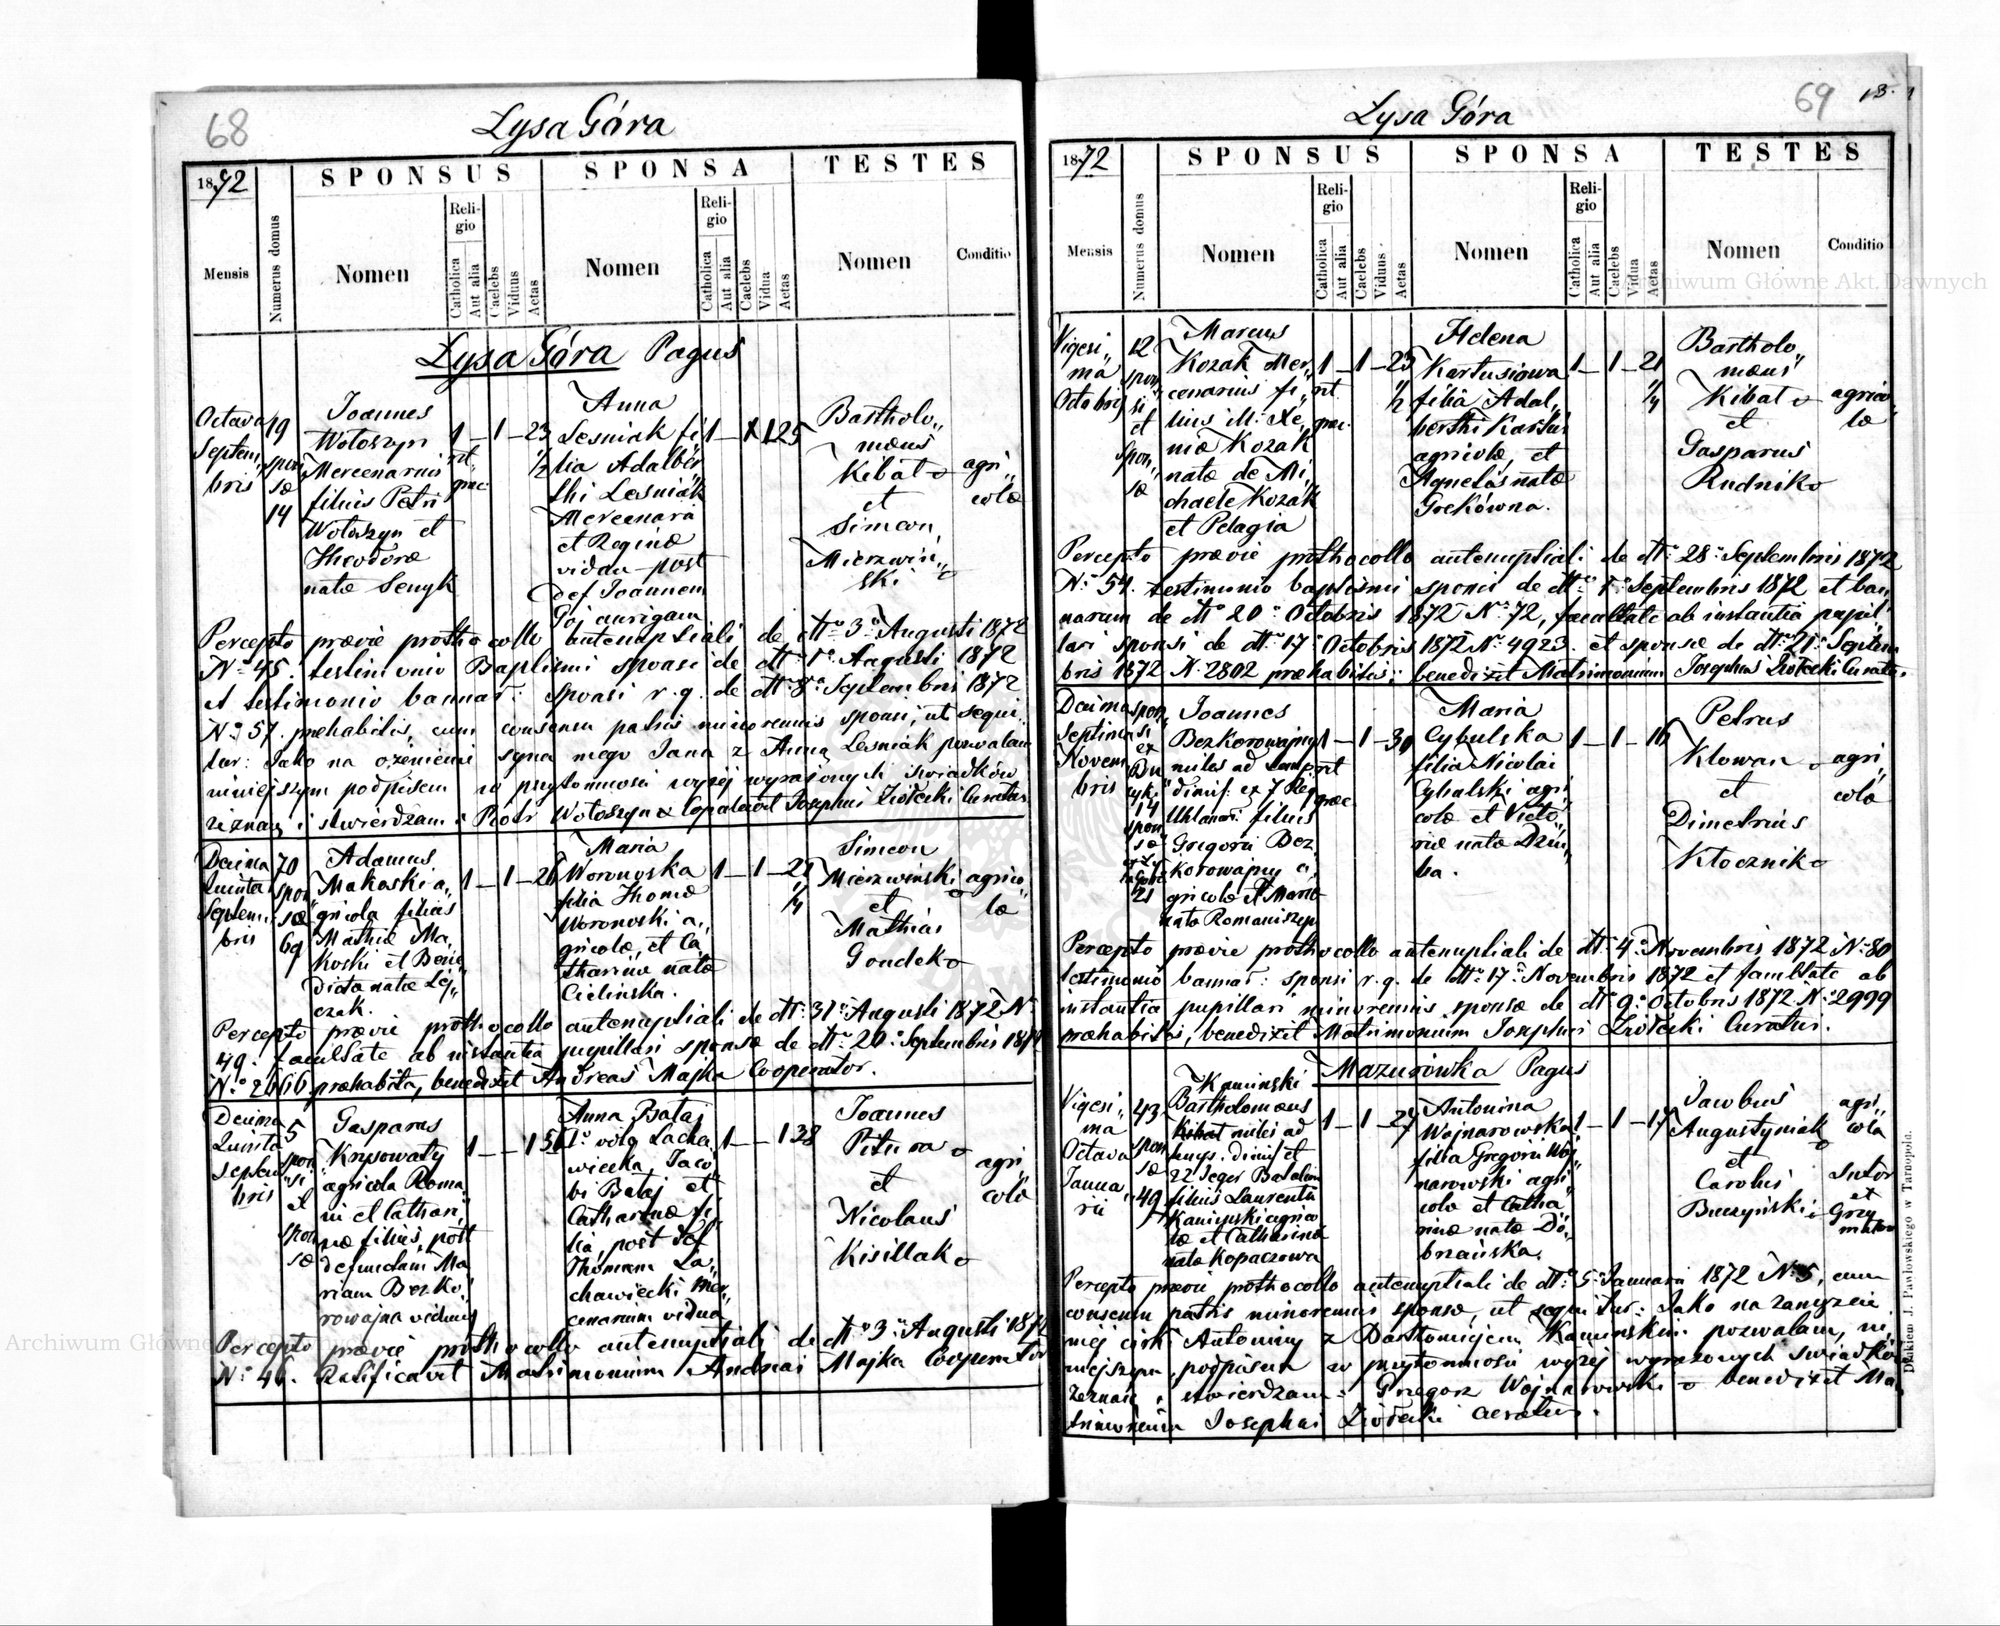 68
Łysa Góra
1872
SPONSUS
SPONSA
TESTES
Mensis
Numerus domus
Nomen
Religio
Catholica
Aut alia
Caelebs
Viduus
Aetas
Nomen
Religio
Catholica
Aut alia
Caelebs
Vidua
Aetas
Nomen
Conditio
Łysa Góra Pagus
Octava
Septem„
bris
19
spon
sæ
14
Joannes
Wołoszyn
Mercenarius
filius Petri
Wołoszyn et
Theodoræ
natæ Senyk
1 – 1 – 23
rit.
græc
1/2
Anna
Lesniak fi
lia Adalber
thi Lesniak
Mercenarii
et Reginæ
vidua post
def Joannem
aurigam
1 – 1 25
Bartholo„
mæus
Kibał
et
Simeon
Mierzwiń„
ski
agri„
colæ
Percepto prævie prothocollo antenuptiali de dtto 3 Augusti 1872
No 45. testimonio Baptismi sponsi de dtto 1 Augusti 1872
et testimonio bannar: sponsi r. g. de dtto 8 Septembris 1872
No 57. præhabitis, cum consensu patris minorennis sponsi, ut sequi
tur: Jako na ożenienie syna mego Jana z Anną Lesniak pozwalam
niniejszym podpisem w przytomności wyżej wyrażonych swiadków
zeznaję i stwierdzam Piotr Wołoszyn Copulavit Josephus Ziółecki Curatus
Decima
Quinta
Septem
bris
70
spon
sæ
69
Adamus
Makoski a„
gricola filius
Mathiæ Ma„
koski et Bene
dicta natæ Lej„
czak.
1 – 1 – 26
Maria
Woronoska
filia Thomæ
Woronoski a„
gricolæ, et Ca
tharinæ natæ
Cielinska.
1 – 1 – 21
1/4
Simeon
Mierzwiński
et
Mathias
Gondek
agrico„
læ
Percepto prævie prothocollo antenuptiali de dtto 31 Augusti 1872 No
49. facultate ab instantia pupillari sponsæ de dtto 20 Septembris 1872
No 2666 præhabita, benedixit Andreas Majka Cooperator.
Decima
Quinta
Septem
bris
5
spon
si
et
spon
sæ
Gasparus
Krysowaty
agricola Roma
ni et Cathari„
næ filius, post
defunctam Ma
riam Bezko„
rowajna viduus
1 – – 1
Anna Bataj
Lacha
wiecka, Jaco
bi Bataj et
Catharinæ fi„
lia, post def
Thomam La„
chawiecki mer„
cenarium vidua
1 – – 1 38
Joannes
Pitura
et
Nicolaus
Kisillak
agri„
colæ
Percepto prævie prothocollo antenuptiali de dtto 3 Augusti 1872
No 46. Ratificavit Matrimonium Andreas Majka Cooperator
69
Łysa Góra
1872
SPONSUS
SPONSA
TESTES
Mensis
Numerus domus
Nomen
Religio
Catholica
Aut alia
Caelebs
Viduus
Aetas
Nomen
Religio
Catholica
Aut alia
Caelebs
Vidua
Aetas
Nomen
Conditio
Vigesi„
ma
Octobris
12
spon
si
et
spon„
sæ
Marcus
Kozak Mer„
cenarius fi„
lius ill: Xe„
niæ Kozak
natæ de Mi„
chaele Kozak
et Pelagia
1 – 1 – 23
rit
græc.
1/2
Helena
Kartusiowa
filia Adal„
berthi Kartus
agricolæ, et
Agnetis natæ
Grekówna.
1 – 1 – 21
1/4
Bartholo„
mæus
Kibał
et
Gasparus
Rudnik
agrico„
læ
Percepto prævie prothocollo antenuptiali de dtto 28 Septembris 1872
No 54. testimonio baptismi sponsi de dtto 1 Septembris 1872 et ban
narum de dtto 20 Octobris 1872 No 72, facultate ab instantia pupil„
lari sponsi de dtto 17 Octobris 1872 No 4923. et sponsæ de dtto 21 Septem
bris 1872 N. 2802 præhabitis; benedixit Matrimonium Josephus Ziółecki Curatus.
Decima
Septima
Novem
bris
spon
si
ex
14
spon
sæ
21
Joannes
Bezkorowajny
miles ad
dimis: ex 7 Reg
Uhlanor: filius
Gregorii Bez
korowajny a„
gricolæ et Maria
nata Romaniszyn
1 – 1 – 30
rit
græc
Maria
Cybulska
filia Nicolai
Cybulski agri
colæ et Victo„
riæ natæ
ba.
1 – 1 – 16
Petrus
Kłowan
et
Dimetrius
Kłocznik
agri„
colæ
Percepto prævie prothocollo antenuptiali de dtto 4 Novembris 1872 No 80
testimonio bannar: sponsi r. g. de dtto 17 Novembris 1872 et facultate ab
instantia pupillari minorennis sponsæ de dtto 9 Octobris 1872 N. 2999
præhabitis, benedixit Matrimonium Josephus Ziółecki Curatus.
Mazurówka Pagus
Vigesi„
ma
Octava
Janua„
rii
43
spon
sæ
49
Kaminski
Bartholomæus
miles ad
filius Laurentii
Kaminski agrico
læ et Catharinæ
nata Kopaczowa
1 – 1 – 27
Antonina
Wojnarowska
filia Gregorii Woj„
narowski agri
colæ et Catha
rinæ natæ Do„
brzańska.
1 – 1 – 17
Jacobus
Augustyniak
et
Carolus
Buczyński
agri„
cola
Sutor
et
Percepto prævie prothocollo antenuptiali de dtto 5 Januarii 1872 No 5, cum
consensu patris minorennis sponsæ, ut sequitur: Jako na zamęzcie
mej córki Antoniny z Bartłomiejem Kaminskim pozwalam, ni„
niejszym podpisem w przytomności wyżej wyrażonych swiadków
zeznaję i stwierdzam Grzegorz Wojnarowski benedixit Ma„
trimonium Josephus Ziółecki Curatus.
Drukiem J. Pawłowskiego w Tarnopolu.
Archiwum Główne Akt Dawnych
Archiwum Główne Akt Dawnych